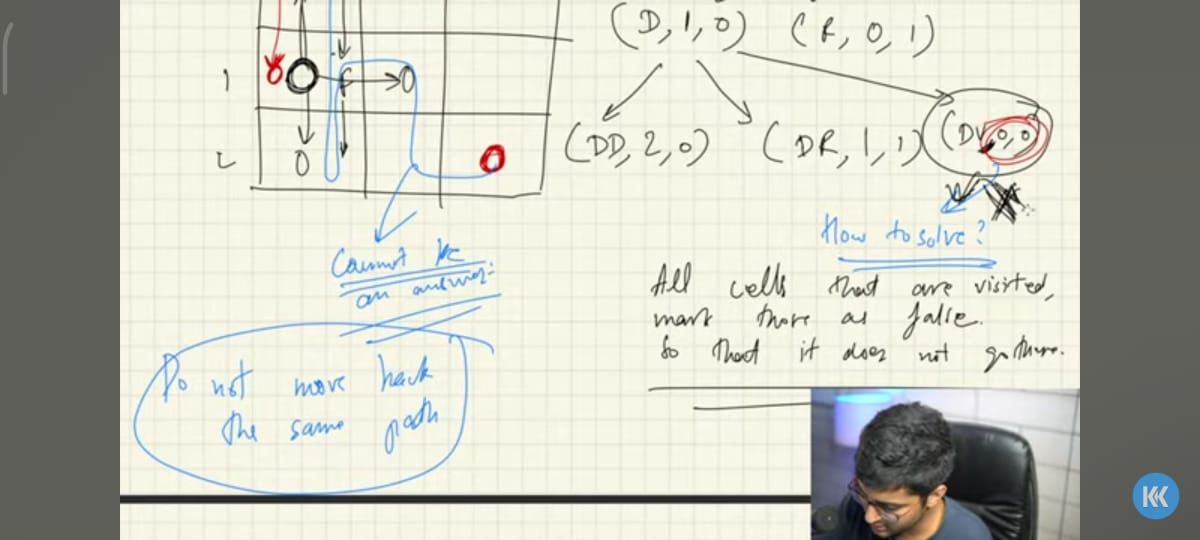 (D, 1, 0) (R, 0, 1)
1 0 F 0
2 0 0
(DD, 2, 0) (DR, 1, 1) (DU, 0, 0)
How to solve?
Cannot be
an answer.
All cells that are visited,
mark those as false.
So that it does not go there.
Do not move back
the same path
KK